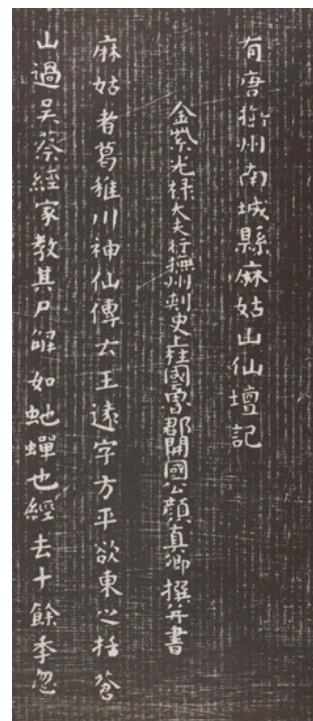 有唐撫州南城縣麻姑山仙壇記
金紫光祿大夫行撫州刺史上柱國魯郡開國公顏真卿撰并書
麻姑者葛稚川神仙傳云王遠字方平欲東之括蒼
山過吳蔡經家教其尸解如虵蟬也經去十餘季忽